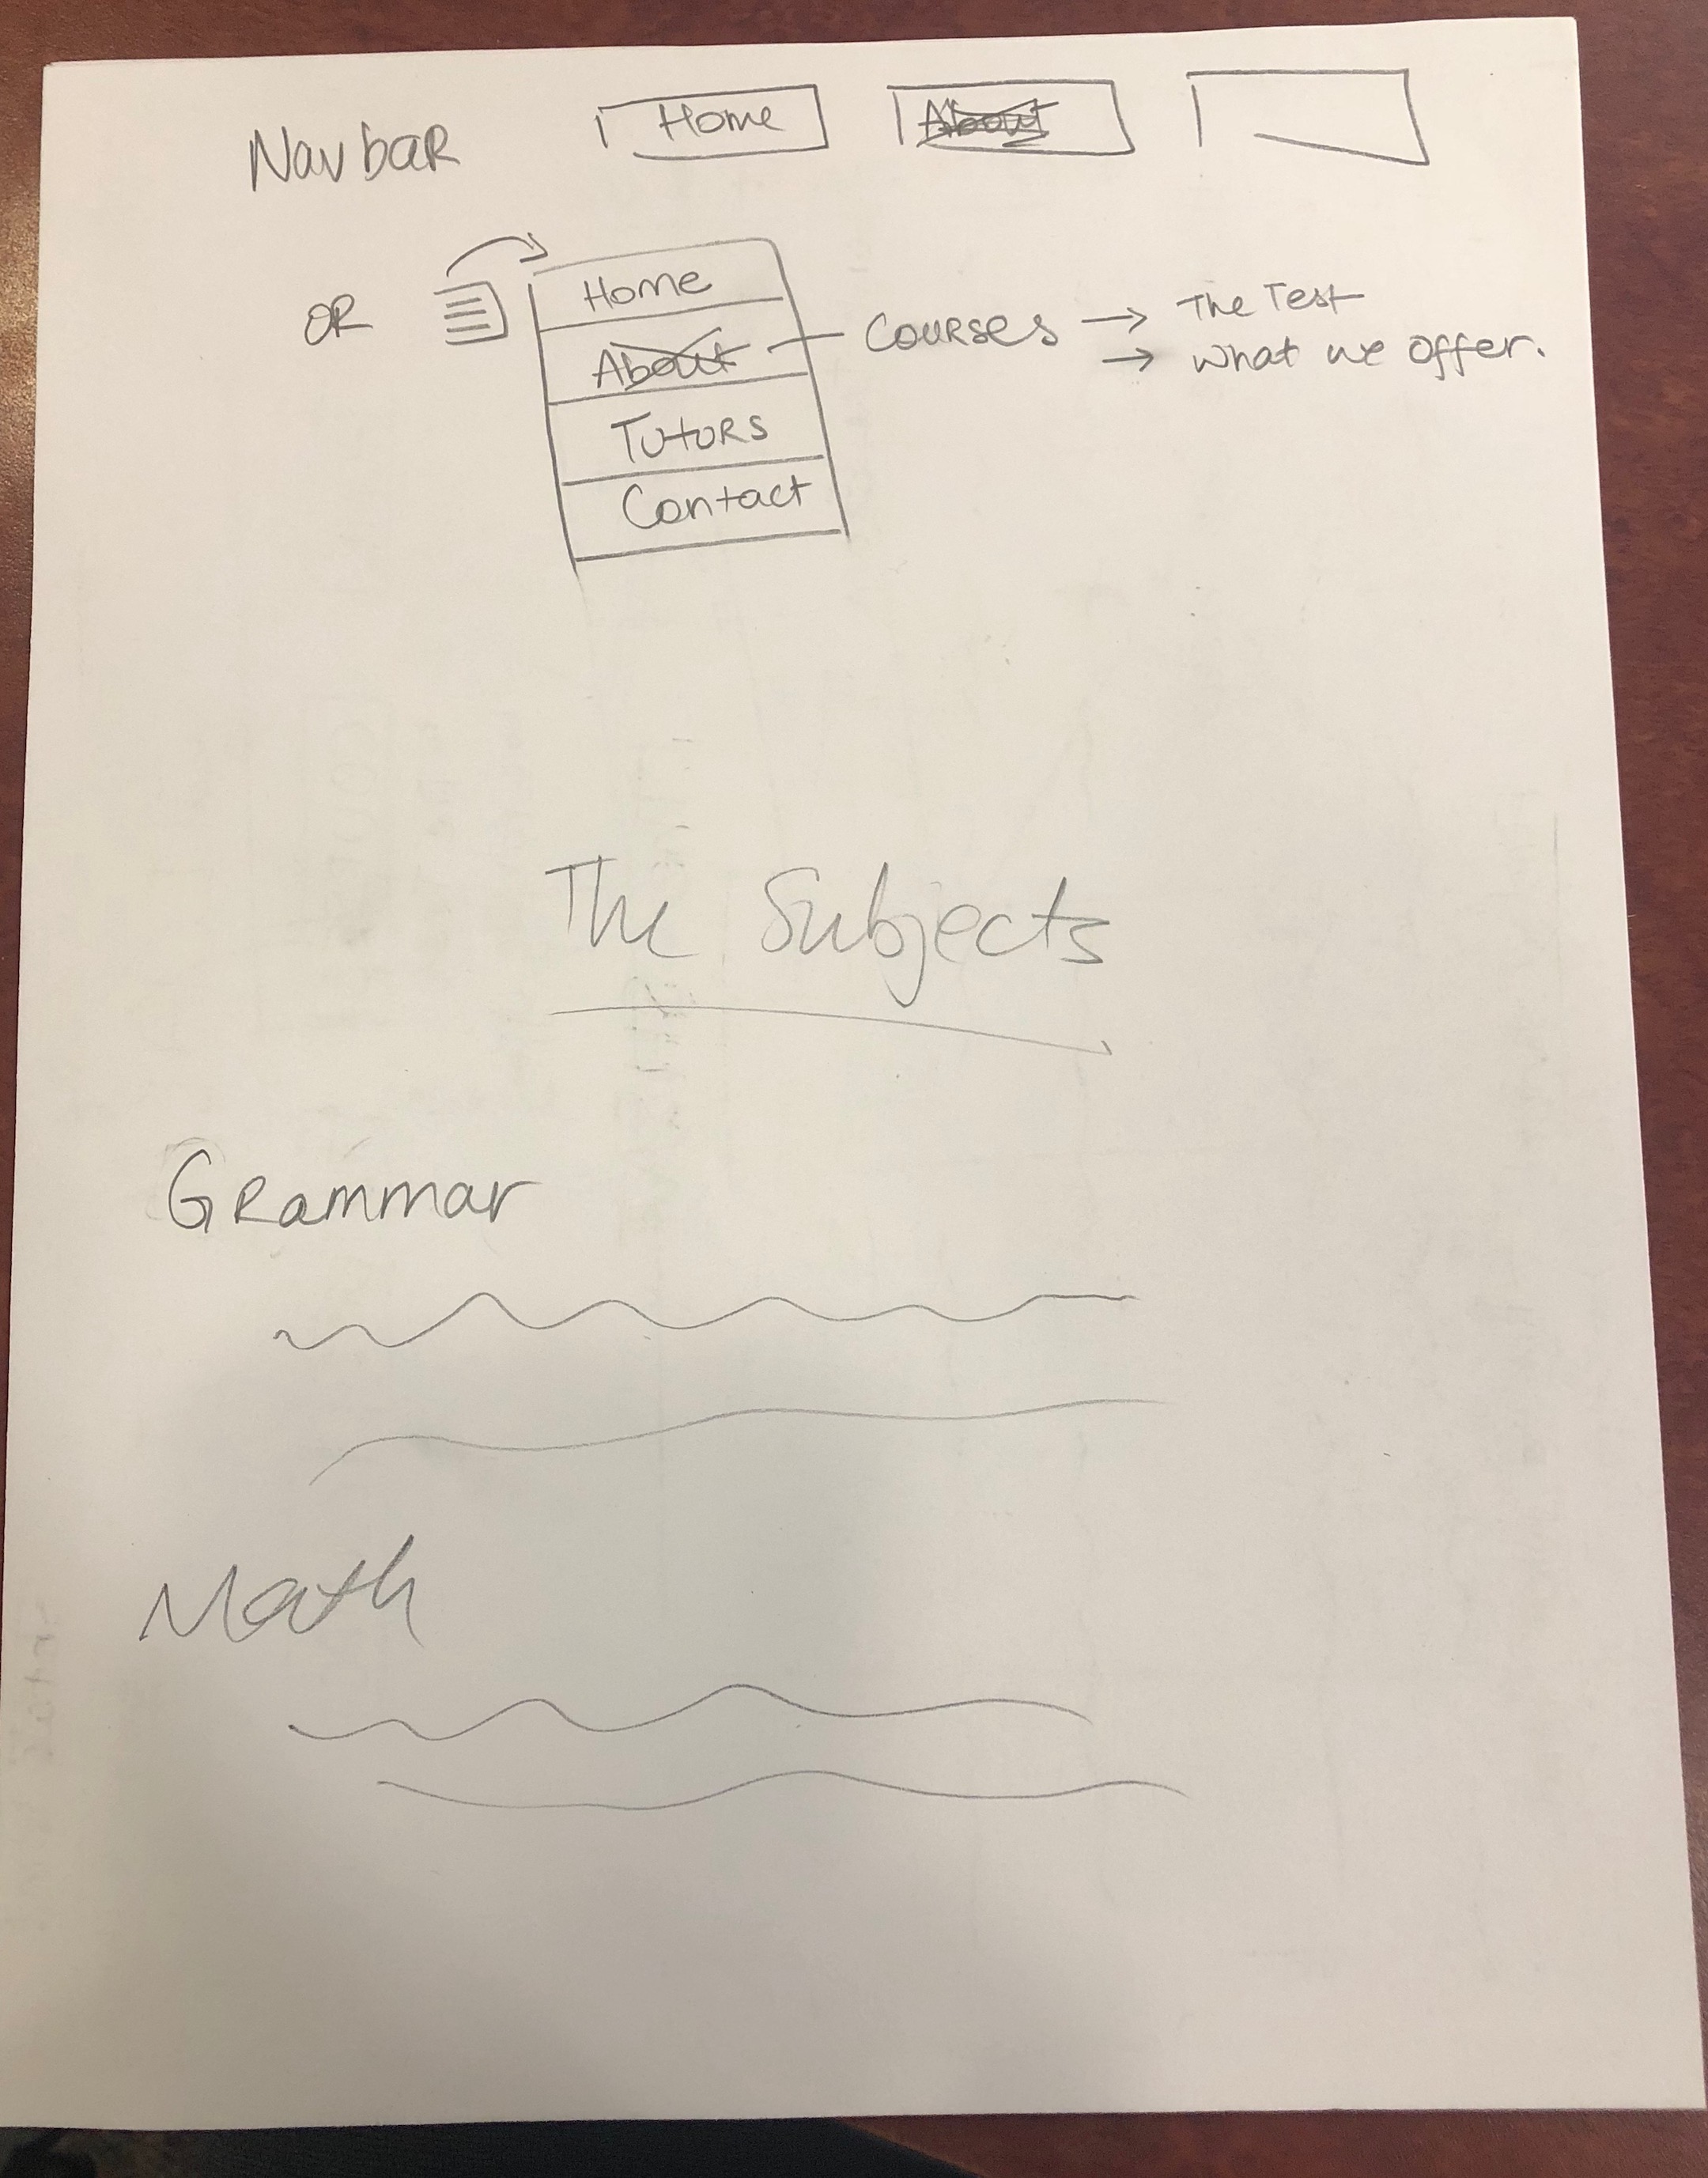 Navbar Home About
OR Home
About Courses → The Test
→ what we offer.
Tutors
Contact
The Subjects
Grammar
Math